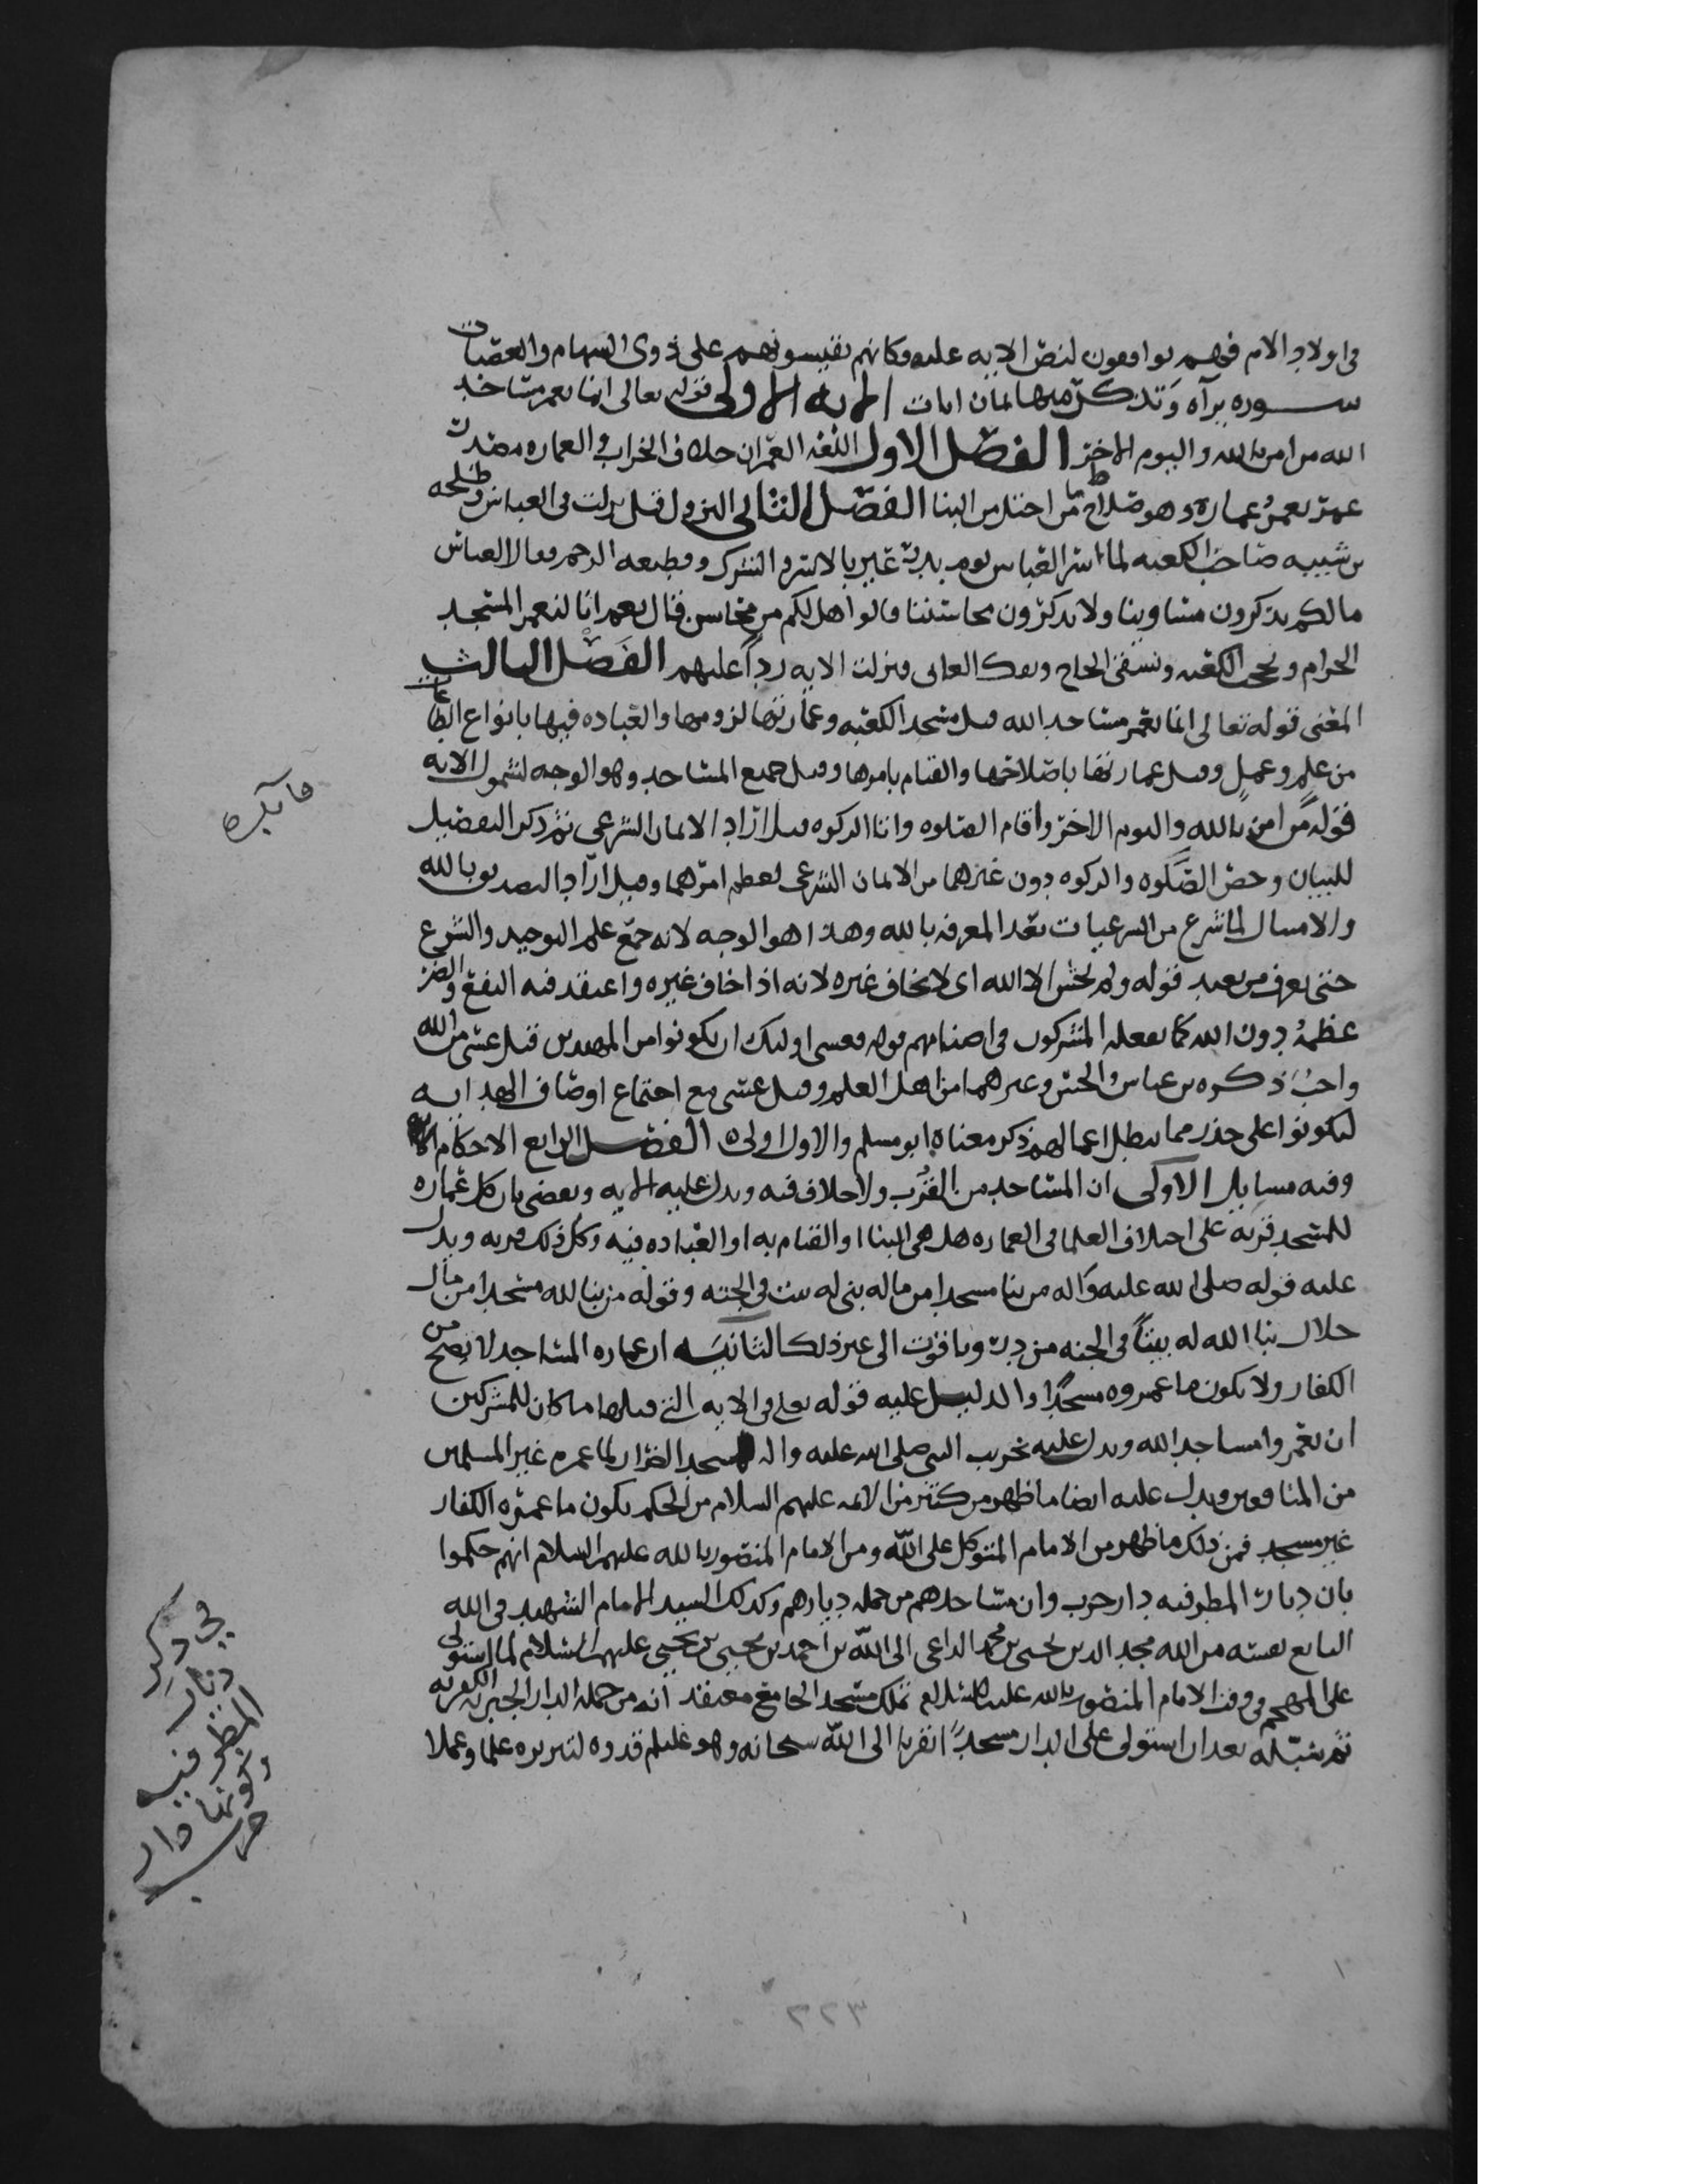 في اولاد الام فهم يوافقون لنص الايه عليه وكانهم يقيسونهم على ذوي السهام والعصبات
سوره برآه وتذكر منها ثمان ايات الايه الاولى قوله تعالى انما يعمر مساجد
الله من امن بالله واليوم الاخر الفصل الاول اللغه العمران خلاف الخراب والعماره مصدر
عمر يعمر عماره وهو صلاح ما اختل من البنا الفصل الثاني النزول قيل نزلت في العباس وطلحه
بن شيبه صاحب الكعبه لما اسر العباس يوم بدر عير بالاسر والشرك وقطيعه الرحم فقال العباس
مالكم تذكرون مساوينا ولا تذكرون محاسننا قالوا هل لكم من محاسن قال نعم انا لنعمر المسجد
الحرام ونحجب الكعبه ونسقي الحاج ونفك العاني فنزلت الايه رداً عليهم الفصل الثالث
المعنى قوله تعالى انما يعمر مساجد الله قيل مسجد الكعبه وعمارتها لزومها والعباده فيها بانواع الطاعات
من علم وعمل وقيل عمارتها باصلاحها والقيام بامرها وقيل جميع المساجد وهو الوجه لشمول الايه
قوله من امن بالله واليوم الاخر واقام الصلوه واتا الزكوه قيل اراد الايمان الشرعي ثم ذكر التفصيل
للبيان وخص الصلوه والزكوه دون غيرهما من الايمان الشرعي لعظم امرهما وقيل اراد التصديق بالله
والامتثال لما شرع من الشرعيات بعد المعرفه بالله وهذا هو الوجه لانه جمع علم التوحيد والشرع
حتى يعرف من يعبد قوله ولم يخش الا الله اي لا يخاف غيره لانه اذا خاف غيره واعتقد فيه النفع والضر
عظمه دون الله كما يفعله المشركون في اصنامهم قوله فعسى اوليك ان يكونوا من المهتدين قيل عسى من الله
واجب ذكره بن عباس والحسن وغيرهما من اهل العلم وقيل عسى مع اجتماع اوصاف الهدايه
ليكونوا على حذر مما يبطل اعمالهم ذكر معناه ابو مسلم والاول اولى الفصل الرابع الاحكام
وفيه مسايل الاولى ان المساجد من القرب ولا خلاف فيه ويدل عليه الايه وتقضي بان كل عماره
للمسجد قربه على اختلاف العلما في العماره هل هي البنا او القيام به او العباده فيه وكل ذلك قربه ويدل
عليه قوله صلى الله عليه واله من بنا مسجدا من ماله بني له بيت في الجنه وقوله من بنا لله مسجدا من مال
حلال بنا الله له بيتاً في الجنه من در وياقوت الى غير ذلك الثانيه ان عماره المساجد لا تصح من
الكفار ولا يكون ما عمروه مسجداً والدليل عليه قوله تعلى في الايه التي قبلها ما كان للمشركين
ان يعمروا مساجد الله ويدل عليه تخريب النبي صلى الله عليه واله لمسجد الضرار لما عمره غير المسلمين
من المنافقين ويدل عليه ايضا ما ظهر من كثير من الايمه عليهم السلام من الحكم بكون ما عمره الكفار
غير مسجد فمن ذلك ما ظهر من الامام المتوكل على الله ومن الامام المنصور بالله عليهم السلام انهم حكموا
بان ديار المطرفيه دار حرب وان مساجدهم من جمله ديارهم وكذلك السيد الامام الشهيد في الله
البايع نفسه من الله مجد الدين يحيى بن محمد الداعي الى الله بن احمد بن يحيى بن يحيى عليهم السلام لما استولى
على المهجم في وقت الامام المنصور بالله عليه السلام تملك مسجد الجامع معتقد انه من جمله الدار الجبريه الكفريه
ثم سبله بعد ان استولى على الدار مسجداً تقربا الى الله سبحانه وهو عليلم قدوه لتبريزه علما وعملا
فايده
في ذكر
ديار
المطرفيه
وكونها دار
حرب
٢٢٣